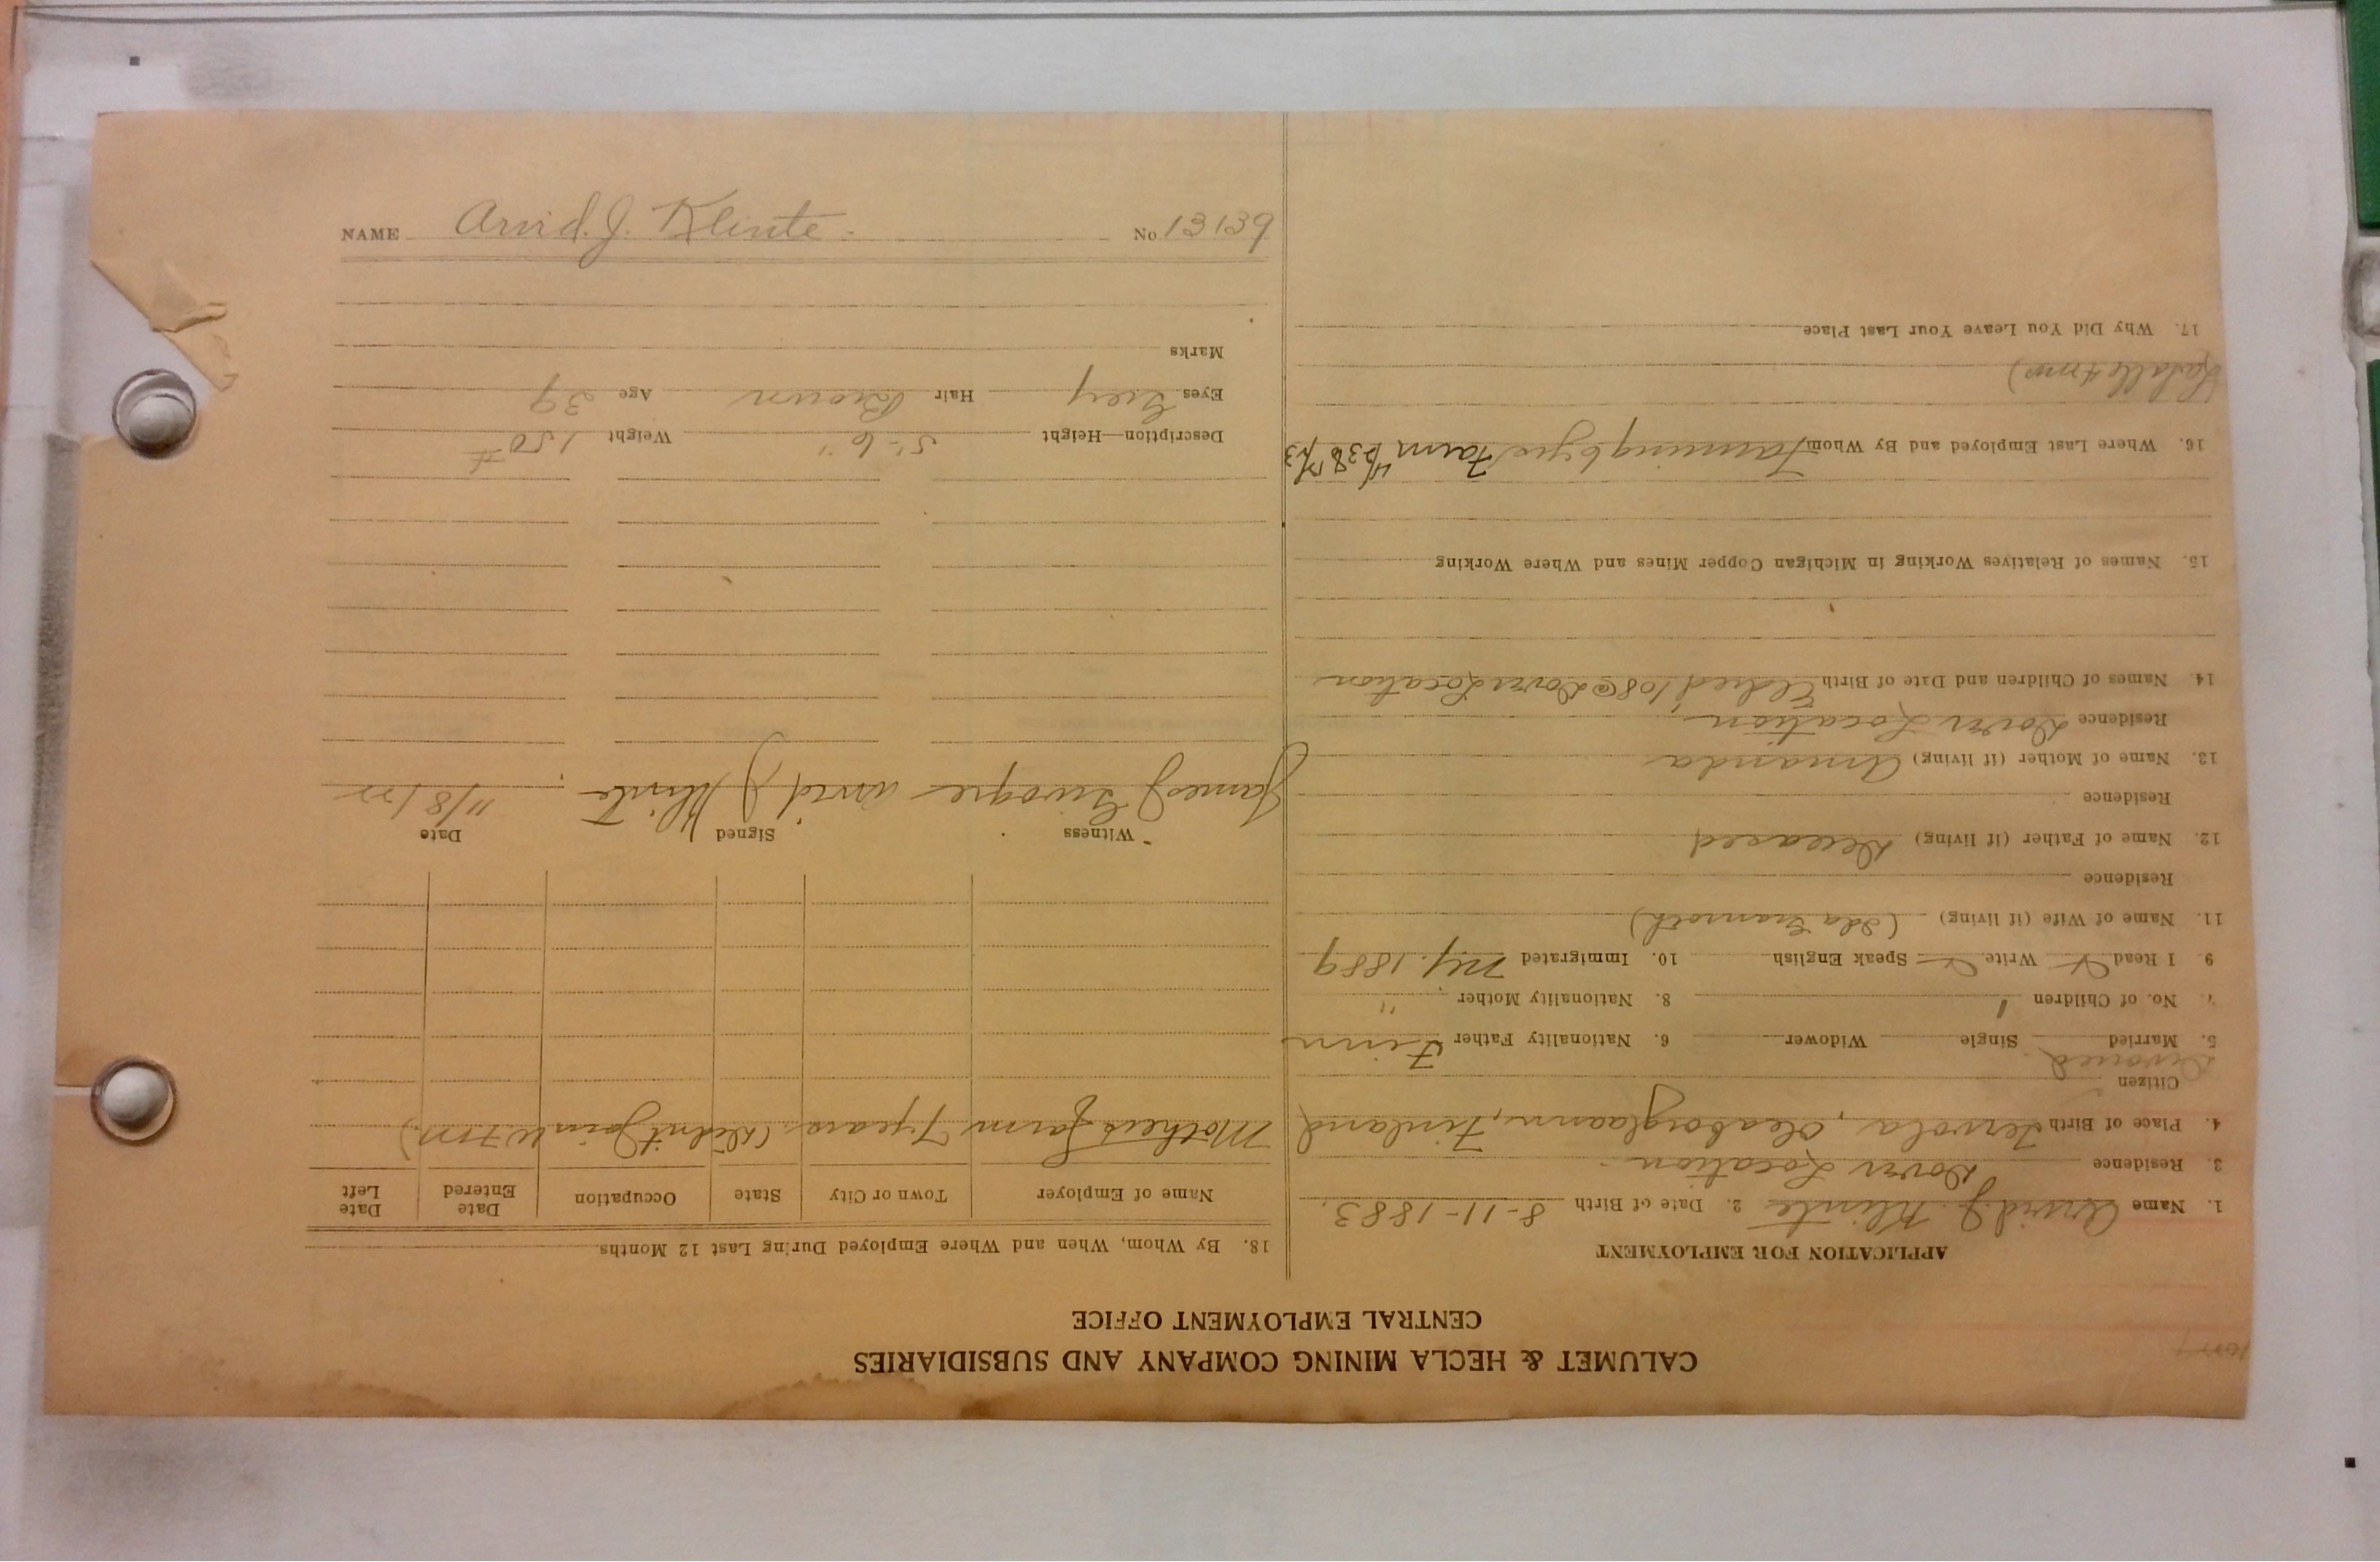 CALUMET & HECLA MINING COMPANY AND SUBSIDIARIES
CENTRAL EMPLOYMENT OFFICE
APPLICATION FOR EMPLOYMENT
1. Name Arvid J. Klinte 2. Date of Birth 8-11-1883.
3. Residence Dover Location
4. Place of Birth Tervola, Finland
Citizen
Divorced
5. Married Single Widower 6. Nationality Father Finn
7. No. of Children 1 8. Nationality Mother "
9. I Read Write Speak English 10. Immigrated 1889
11. Name of Wife (if living) (Ida
Residence
12. Name of Father (if living) Deceased
Residence
13. Name of Mother (if living) Amanda
Residence Dover Location
14. Names of Children and Date of Birth Dover Location
15. Names of Relatives Working in Michigan Copper Mines and Where Working
16. Where Last Employed and By Whom Farming Farm
17. Why Did You Leave Your Last Place
18. By Whom, When and Where Employed During Last 12 Months
Name of Employer Town or City State Occupation Date Entered Date Left
Mothers farm 7 years (Didn't
Witness Signed Date
James Arvid J Klinte 11/8/22
Description—Height 5'-6" Weight 150#
Eyes Grey Hair Brown Age 39
Marks
NAME Arvid. J. Klinte. No 13139